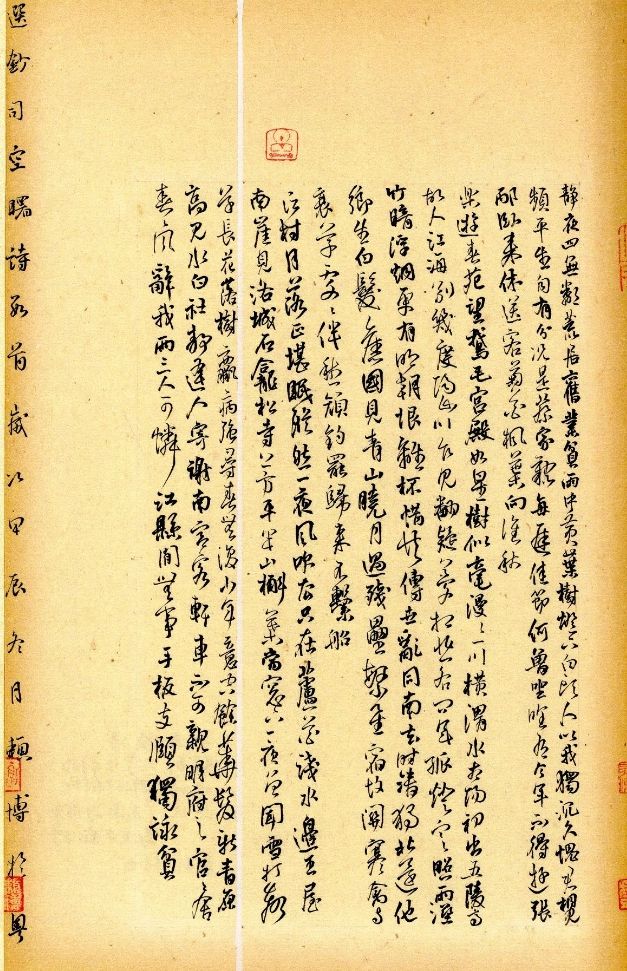 静夜四無鄰荒居舊業貧雨中黄葉樹燈下白頭人以我獨沉久愧君相見
頻平生自有分况是蔡家親每逢佳節何曾坐唯有今年不得遊張
邴卧来休送客菊花楓葉向誰秋
樂遊春苑望鵞毛宫殿如星樹似毫漫〻一川横渭水太陽初出五陵高
故人江海别幾度隔山川乍見翻疑夢相悲各問年孤燈寒照雨深
竹暗浮烟更有明朝恨離杯惜共傳世亂同南去時清獨北還他
鄉生白髮舊國見青山曉月過殘壘繁星宿故關寒禽與
衰草處〻伴愁顔釣罷歸来不繫船
江村月落正堪眠縱然一夜風吹去只在蘆花淺水邊置屋
南崖見洛城石龕松寺上方平半山槲葉當窓下一夜曾聞雪打聲
草長花落樹羸病强尋春無復少年意空餘華髮新青原
高見水白社静逢人寄謝南宫客軒車不可親明府之官舍
春風辭我兩三人可憐江縣閒無事手板支頤獨詠貧
選鈔司空曙詩數首歲次甲辰冬月賴博於粵